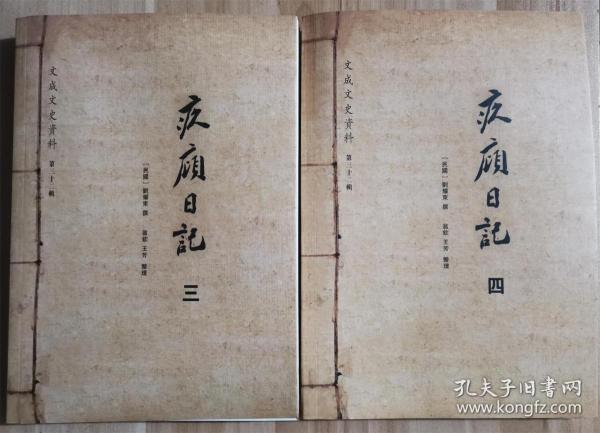 文成文史資料 第三十一輯
疚廎日記
[民國] 劉耀東 撰
王芳 整理
三
文成文史資料 第三十一輯
疚廎日記
[民國] 劉耀東 撰
王芳 整理
四
孔夫子旧书网
www.kongfz.com